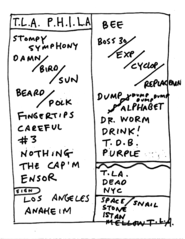 T.L.A. P.H.I.L.A
STOMPY
SYMPHONY
DAMN/
BIRD/
SUN
BEARD/
POLK
FINGERTIPS
CAREFUL
#3
NOTHING
THE CAP'M
ENSOR
LOS ANGELES
ANAHEIM
BEE
BOSS
EXP/
CYCLOP/
REPLACEMENT
DUMP DUMP DUMP
ALPHABET
DR. WORM
DRINK!
T.D.B.
PURPLE
T.L.A.
DEAD
NYC
SPACE/SNAIL
STONE
ISTAN
MELLOW T.L.A.